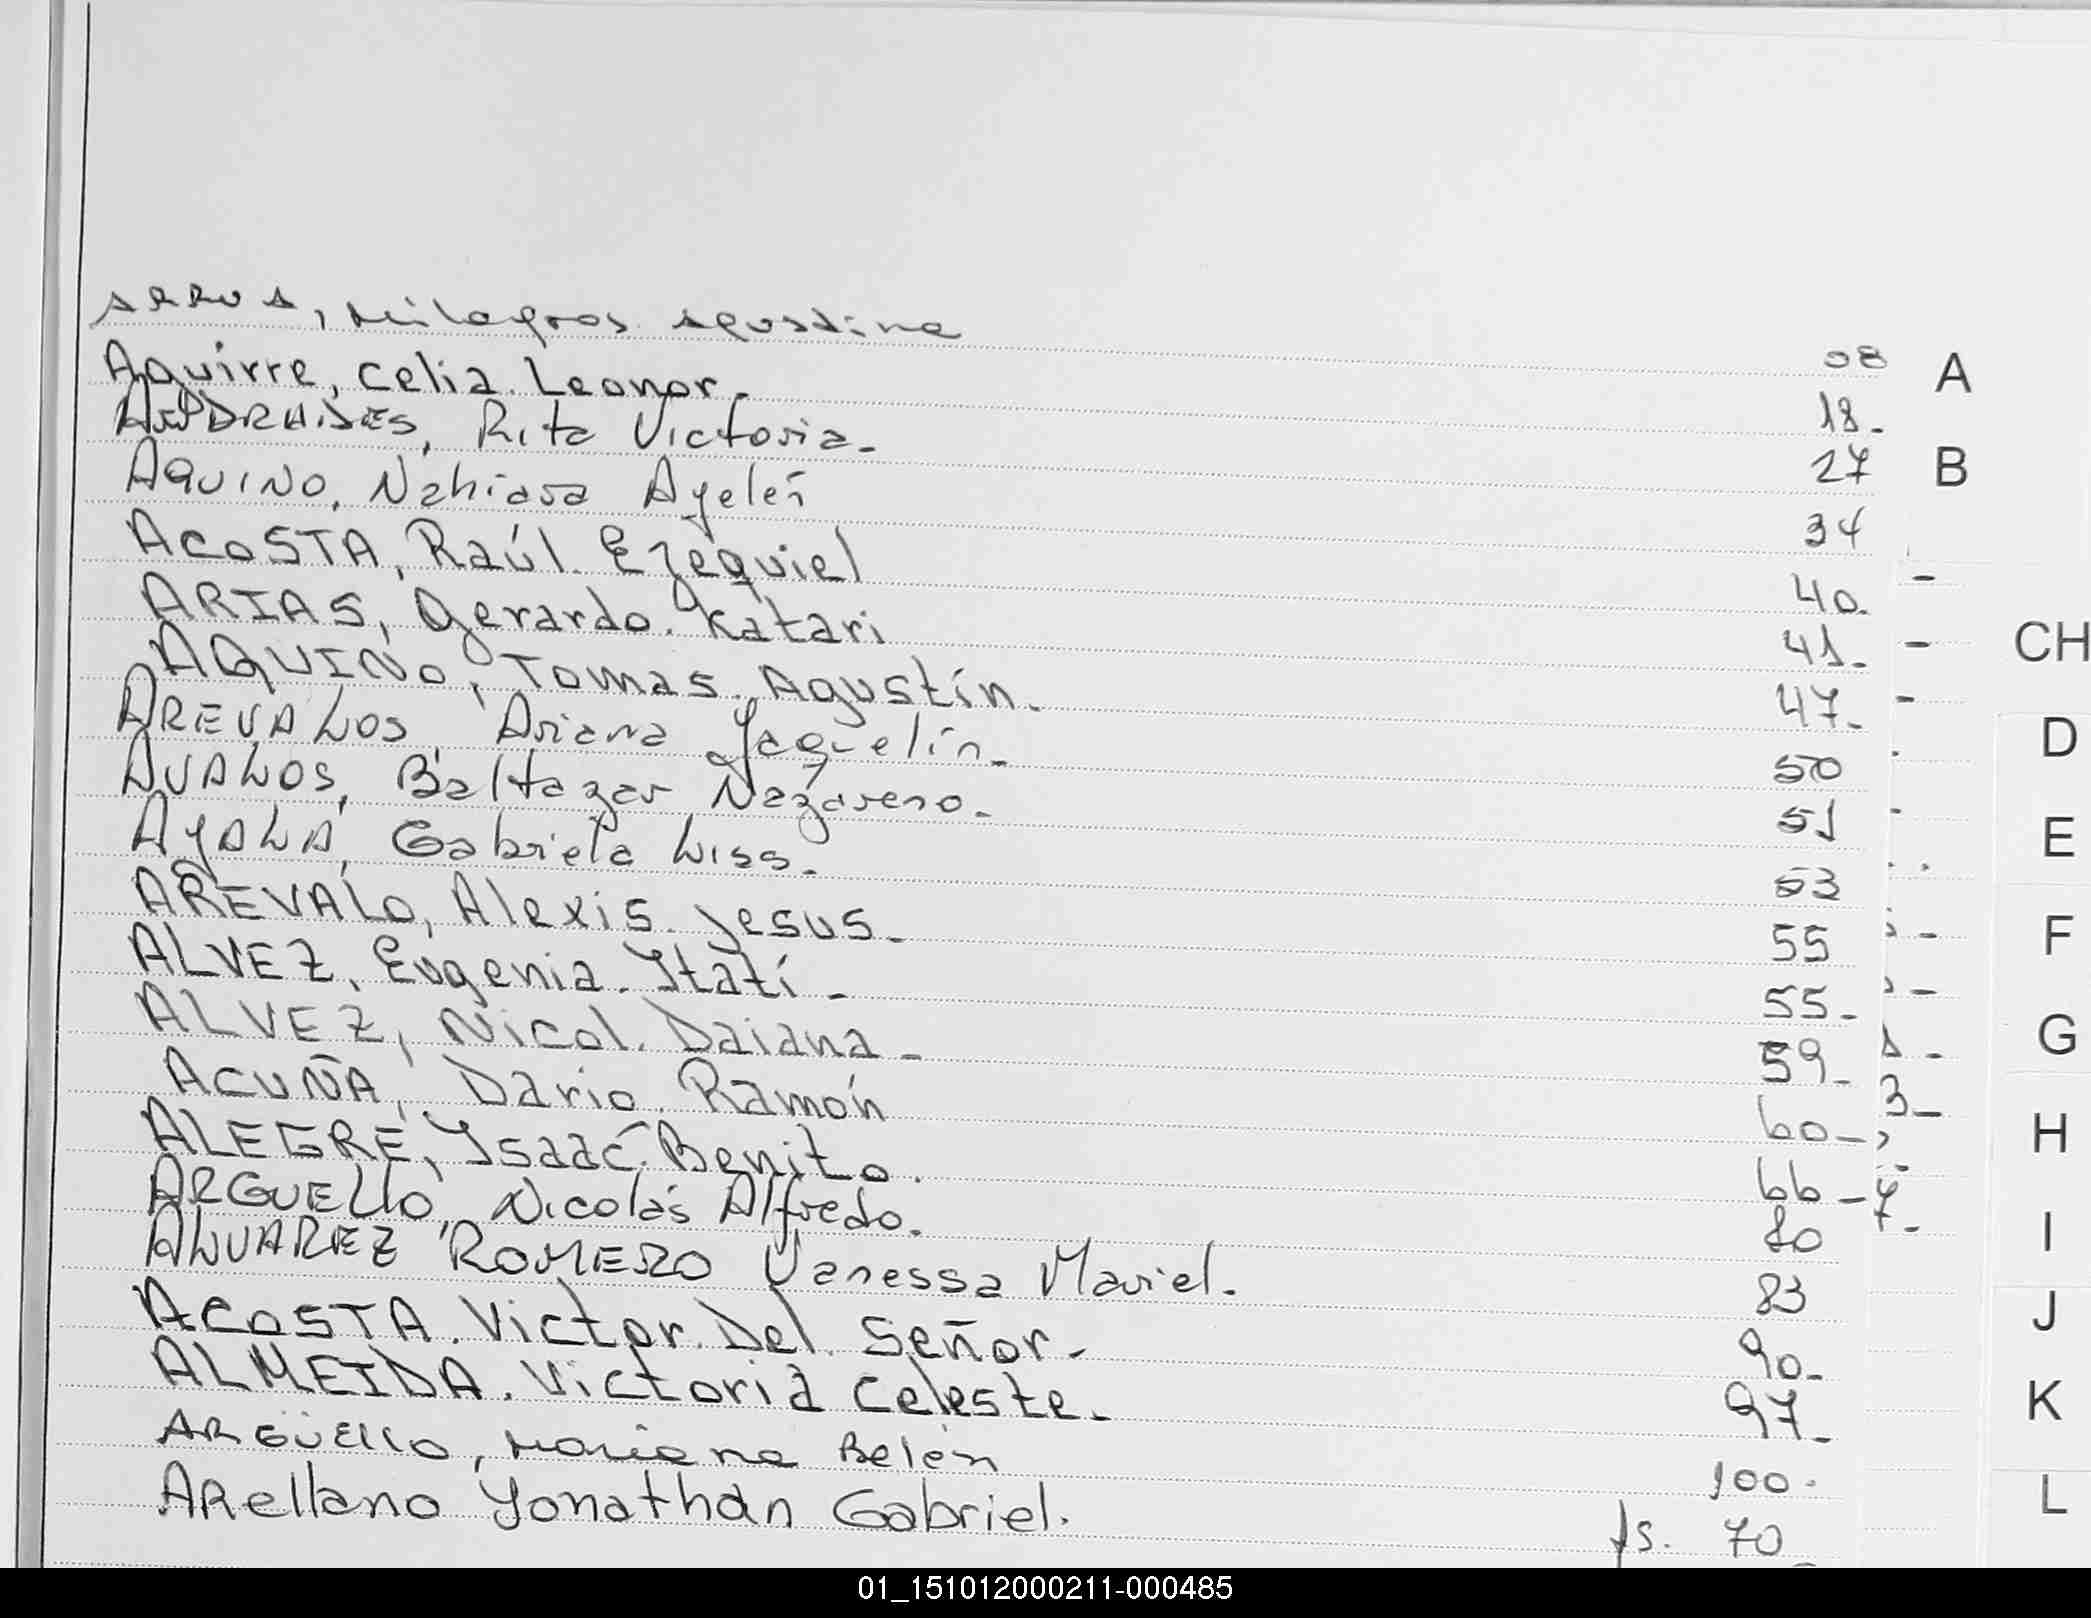 ARRUA, Milagros Agustina 08
Aguirre, Celia Leonor. 18.
Rita Victoria. 27
AQUINO, Nahiara Ayelén 34
ACOSTA, Raúl Ezequiel 40.
ARIAS, Gerardo Katari 41.
AQUINO, Tomas Agustín. 47.
AREVALOS, Ariana Jaquelín. 50
AVALOS, Baltazar Nazareno. 51
AYALA, Gabriela Lisa. 53
AREVALO, Alexis Jesus. 55
ALVEZ, Eugenia Itatí - 55.
ALVEZ, Nicol Daiana - 59.
ACUÑA, Dario Ramón 60-
ALEGRE, Isaac Benito. 66-
ARGUELLO, Nicolás Alfredo. 80
ALVAREZ ROMERO Vanessa Mariel. 83
ACOSTA, Victor Del Señor. 90.
ALMEIDA, Victoria Celeste. 97.
ARGÜELLO, Mariana Belén 100.
ARellano Yonathan Gabriel. fs. 70
A
B
CH
D
E
F
G
H
I
J
K
L
01_151012000211-000485